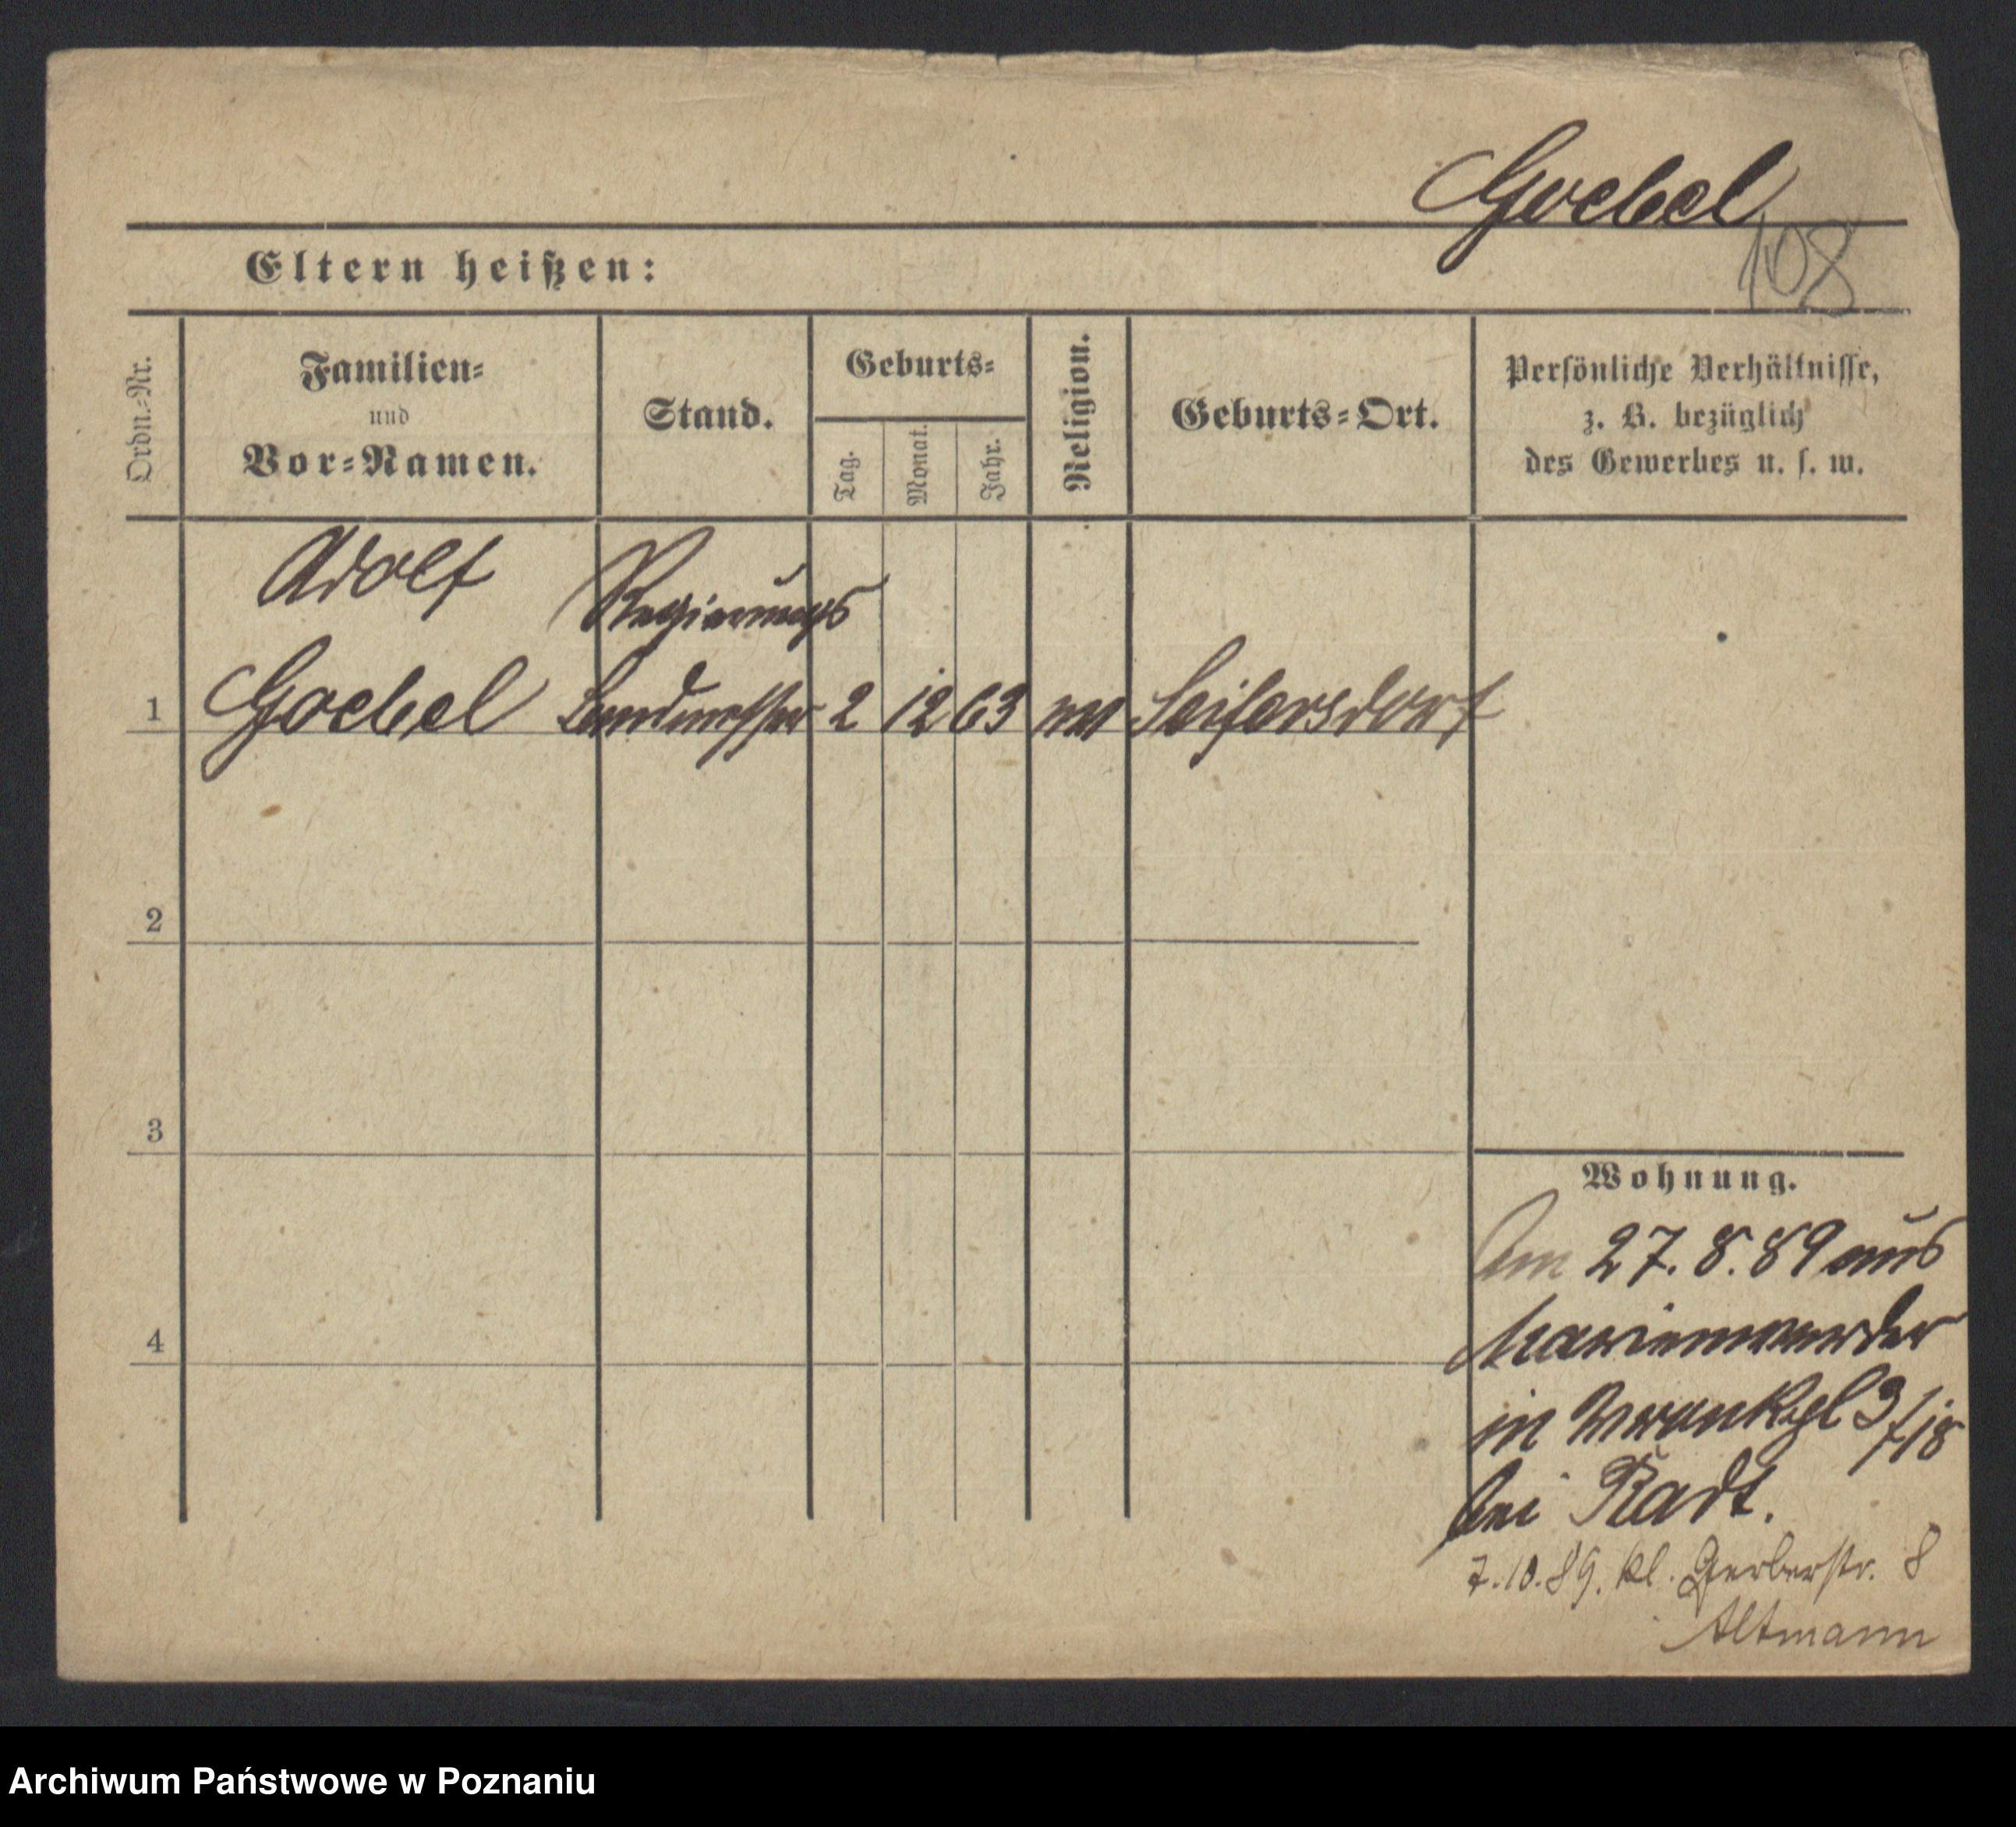 Goebel
108
Eltern heißen:
Ordn.-Nr.
Familien-
und
Vor-Namen.
Stand.
Geburts-
Tag.
Monat.
Jahr.
Religion.
Geburts-Ort.
Persönliche Verhältnisse,
z. B. bezüglich
des Gewerbes u. s. w.
Adolf
Regierungs
1 Goebel Landmesser 2 12 63 ev Seifersdorf
2
3
4
Wohnung.
Am 27. 8. 89 aus
Marienwerder
in 3/18
bei Radt.
7.10.89. Kl. Gerberstr. 8
Altmann
Archiwum Państwowe w Poznaniu